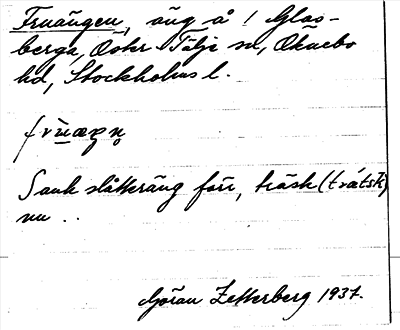 Fruängen, äng å 1 Glas-
berga, Östr Tälje sn, Öknebo
hd, Stockholms l.
Sank slåtteräng förr, träsk (trätsk)
nu ..
Göran Zetterberg 1937.